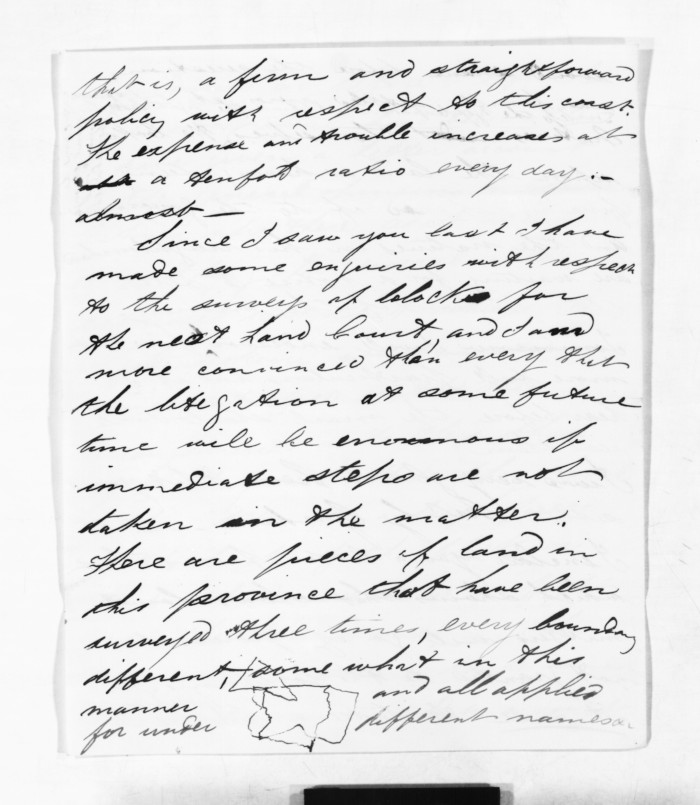 that is, a firm and straightforward
policy with respect to this coast.
The expense and trouble increases at
a tenfold ratio every day. –
almost –
Since I saw you last I have
made some enquiries with respect
to the surveys of blocks for
the next Land Court, and I am
more convinced than every that
the litegation at some future
time will be enormous if
immediate steps are not
taken in the matter.
There are pieces of land in
this province that have been
surveyed three times, every boundary
different, some what in this
manner and all applied
for under different names or